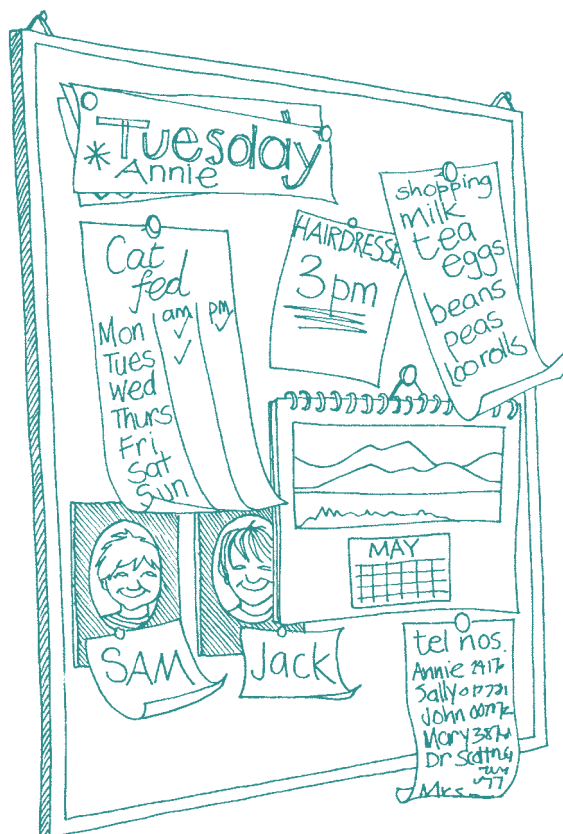 * Tuesday
Annie
Cat
fed
am pm
Mon ✓ ✓
Tues ✓
Wed
Thurs
Fri
Sat
Sun
HAIRDRESSE
3pm
shopping
milk
tea
eggs
beans
peas
loorolls
MAY
SAM
Jack
tel nos.
Annie
Sally
John
Mary
Dr
Mrs